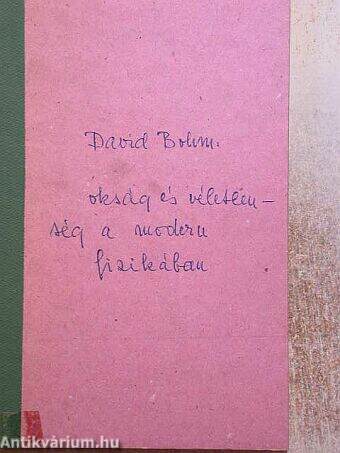 David Bohm.
okság és véletlen-
ség a modern
fizikában
Antikvárium.hu